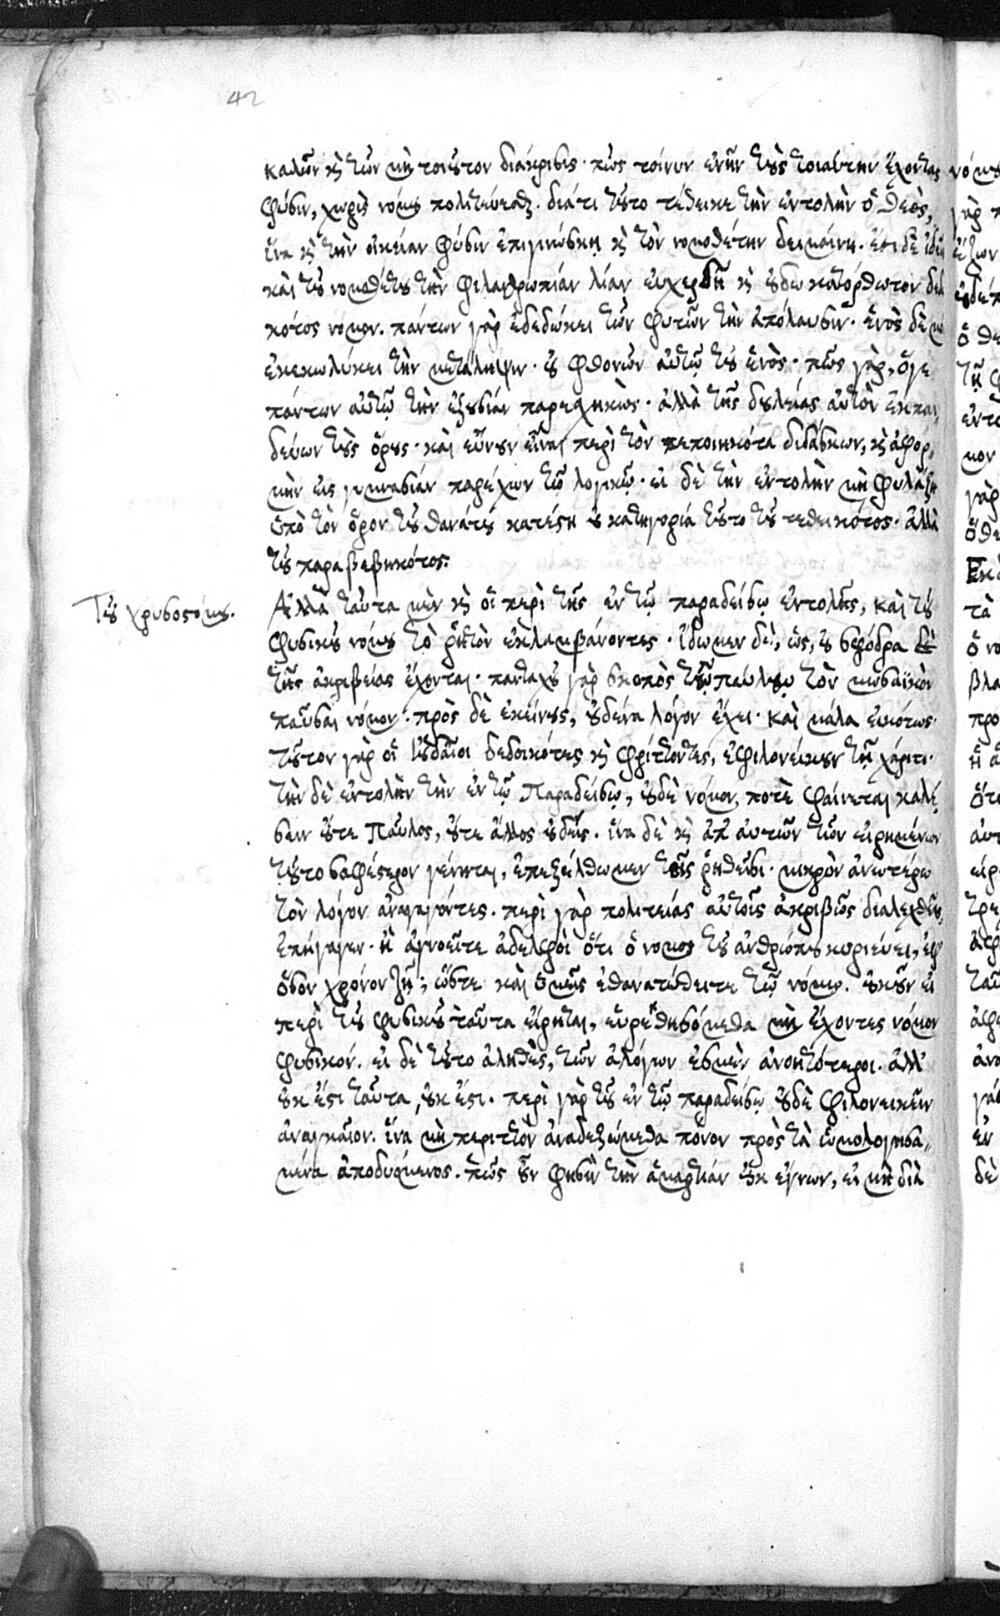 42
καλῶν καὶ τῶν μὴ τοιούτων διάκρισις· πῶς τοίνυν ἐνῆν τοὺς τοιαύτην ἔχοντας
φύσιν, χωρὶς νόμου πολιτεύεσθαι. διά τι τοῦτο τέθεικε τὴν ἐντολὴν ὁ Θεὸς,
ἵνα καὶ τὴν οἰκείαν φύσιν ἐπιγινώσκῃ καὶ τὸν νομοθέτην δειμαίνῃ. ἔστι δὲ ἰδεῖν
καὶ τοῦ νομοθέτου τὴν φιλανθρωπίαν λίαν εὐχερῆ καὶ εὐδωκατόρθωτον δεδω
κότος νόμον. πάντων γὰρ ἐδεδώκει τῶν φυτῶν τὴν ἀπόλαυσιν· ἑνὸς δὲ μό
ἐκεκωλύκει τὴν μετάληψιν· οὐ φθονῶν αὐτῷ τοῦ ἑνὸς· πῶς γὰρ, ὅγε
πάντων αὐτῷ τὴν ἐξουσίαν παρεσχηκὼς· ἀλλὰ τῆς δουλείας αὐτὸν ἐκπαι
δεύων τοὺς ὅρους· καὶ εὔνουν εἶναι περὶ τὸν πεποιηκότα διδάσκων, καὶ ἀφορ
μὴν εἰς γυμνασίαν παρέχων τῷ λογικῷ· εἰ δὲ τὴν ἐντολὴν μὴ φυλάξας
ὑπὸ τὸν ὅρον τοῦ θανάτου κατέστη οὐ κατηγορία τοῦτο τοῦ τεθεικότος· ἀλλὰ
τοῦ παραβεβηκότος.
Τοῦ χρυσοστόμου.
Ἀλλὰ ταῦτα μὲν καὶ οἱ περὶ τῆς ἐν τῷ παραδείσῳ ἐντολῆς, καὶ τοῦ
φυσικοῦ νόμου τὸ ῥητὸν ἐκλαμβάνοντες· ἴδωμεν δὲ, ὡς, οὐ σφόδρα
τῆς ἀκριβείας ἔχονται· πανταχοῦ γὰρ σκοπὸς τῷ παύλῳ τὸν μωσαϊκὸν
παῦσαι νόμον· πρὸς δὲ ἐκείνους, οὐδένα λόγον ἔχει· καὶ μάλα εἰκότως·
τοῦτον γὰρ οἱ Ἰουδαῖοι δεδοικότες καὶ φρίττοντες, ἐφιλονείκουν τῇ χάριτι·
τὴν δὲ ἐντολὴν τὴν ἐν τῷ Παραδείσῳ, οὐδὲ νόμον ποτὲ φαίνεται καλέ
σαν οὔτε Παῦλος, οὔτε ἄλλος οὐδείς. ἵνα δὲ καὶ ἀπ᾽ αὐτῶν τῶν εἰρημένων
τοῦτο σαφέστερον γένηται, ἐπεξέλθωμεν τοῖς ῥηθεῖσι· μικρὸν ἀνωτέρω
τὸν λόγον ἀναγαγόντες. περὶ γὰρ πολιτείας αὐτοῖς ἀκριβῶς διαλεχθεὶς,
ἐπήγαγεν· ἢ ἀγνοεῖτε ἀδελφοὶ ὅτι ὁ νόμος τοῦ ἀνθρώπου κυριεύει, ἐφ᾽
ὅσον χρόνον ζῇ; ὥστε καὶ ὑμεῖς ἐθανατώθητε τῷ νόμῳ. οὐκοῦν εἰ
περὶ τοῦ φυσικοῦ ταῦτα εἴρηται, εὑρεθησόμεθα μὴ ἔχοντες νόμον
φυσικόν. εἰ δὲ τοῦτο ἀληθὲς, τῶν ἀλόγων ἐσμὲν ἀνοητότεροι. ἀλλ᾽
οὐκ ἔστι ταῦτα, οὐκ ἔστι. περὶ γὰρ τοῦ ἐν τῷ παραδείσῳ οὐδὲ φιλονεικεῖν
ἀναγκαῖον. ἵνα μὴ περιττὸν ἀναδεξώμεθα πόνον πρὸς τὰ ὡμολογησα
μένα ἀποδυόμενος. πῶς οὖν φησὶν τὴν ἁμαρτίαν οὐκ ἔγνων, εἰ μὴ διὰ